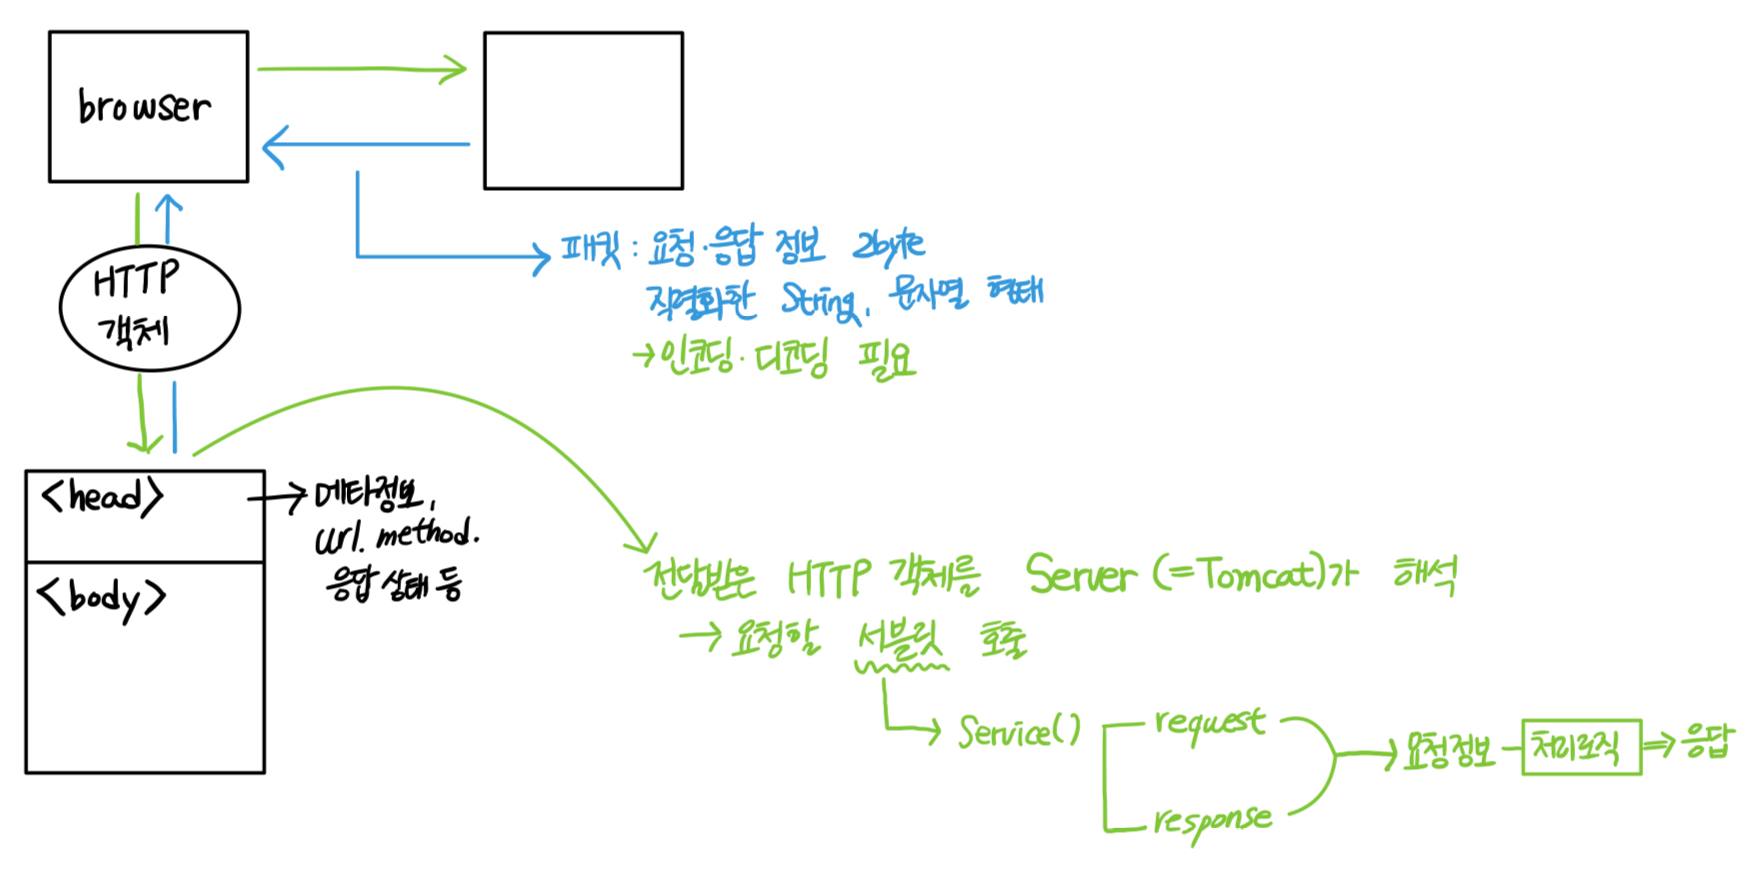 browser
HTTP
객체
패킷 : 요청·응답 정보 2byte
직렬화한 String, 문자열 형태
→인코딩·디코딩 필요
<head>
메타정보,
url. method.
응답 상태 등
<body>
전달받은 HTTP 객체를 Server (=Tomcat)가 해석
→ 요청할 서블릿 호출
Service()
request
response
요청정보
처리로직
응답